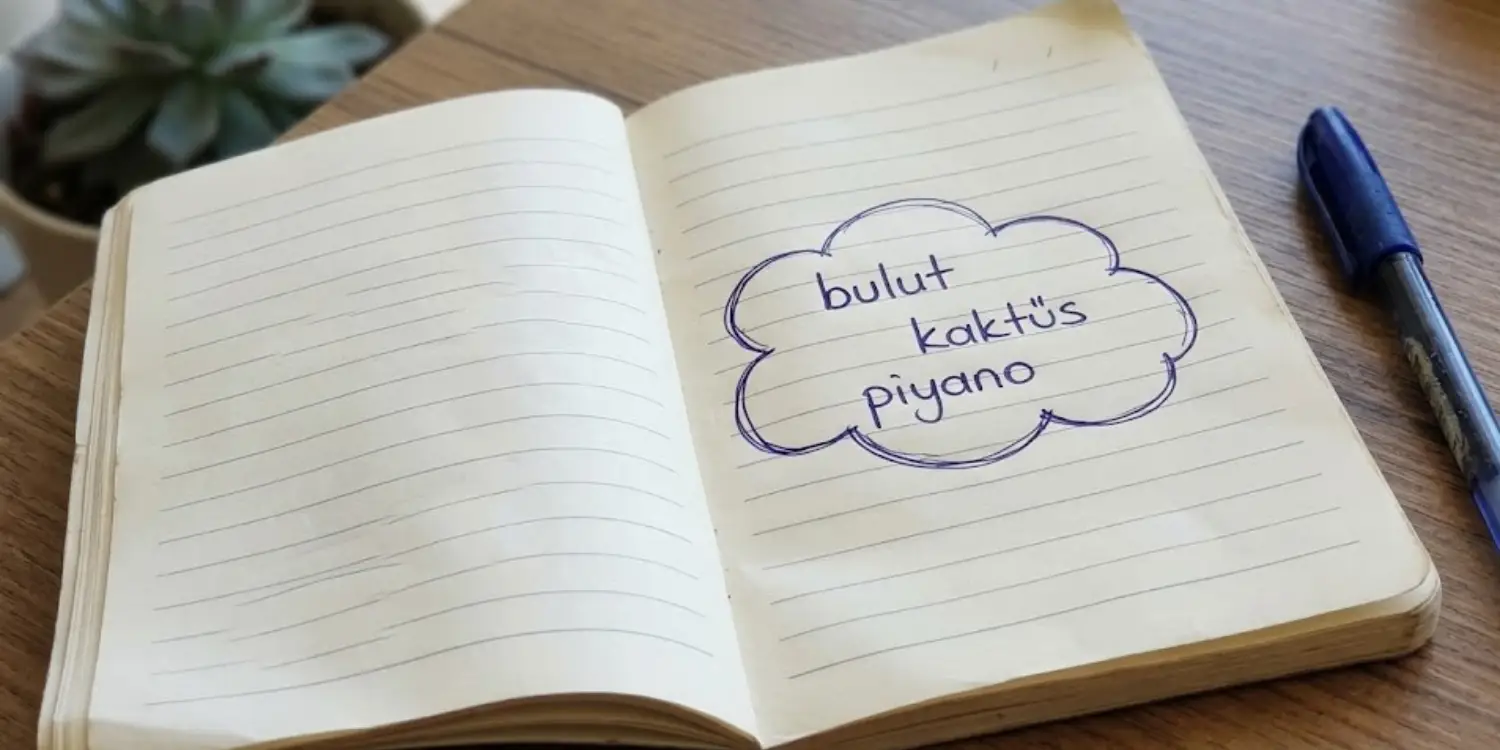 bulut
kaktüs
piyano